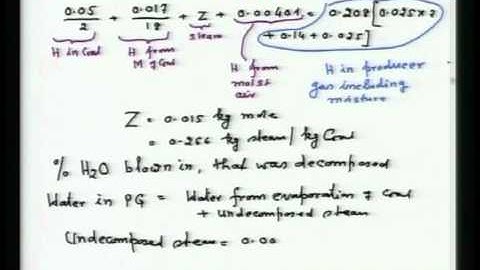 0.05/2 + 0.017/18 + Z + 0.00401 = 0.208 [0.025×2
+ 0.14 + 0.025]
H in Coal
H from M of Coal
steam
H from moist air
H in producer gas including moisture
Z = 0.015 kg mole
= 0.266 kg steam / kg Coal
% H2O blown in, that was decomposed
Water in PG = Water from evaporation of Coal
+ Undecomposed steam
Undecomposed steam = 0.00